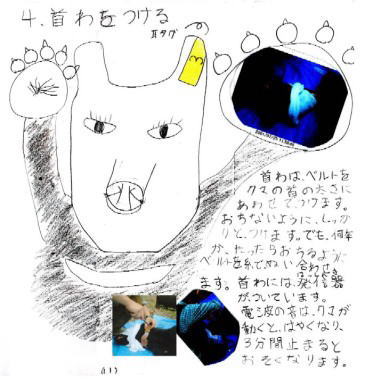 4.首わをつける
耳タグ
首わは、ベルトを
クマの首の太さに
あわせてつけます。
おちないように、しっか
りと、つけます。でも、何年
か、たったらおちるように
ベルトを糸でぬい合わせ
ます。首わには、発信器
がついています。
電波の音は、クマが
動くと、はやくなり、
3分間止まると
おそくなります。
(11)